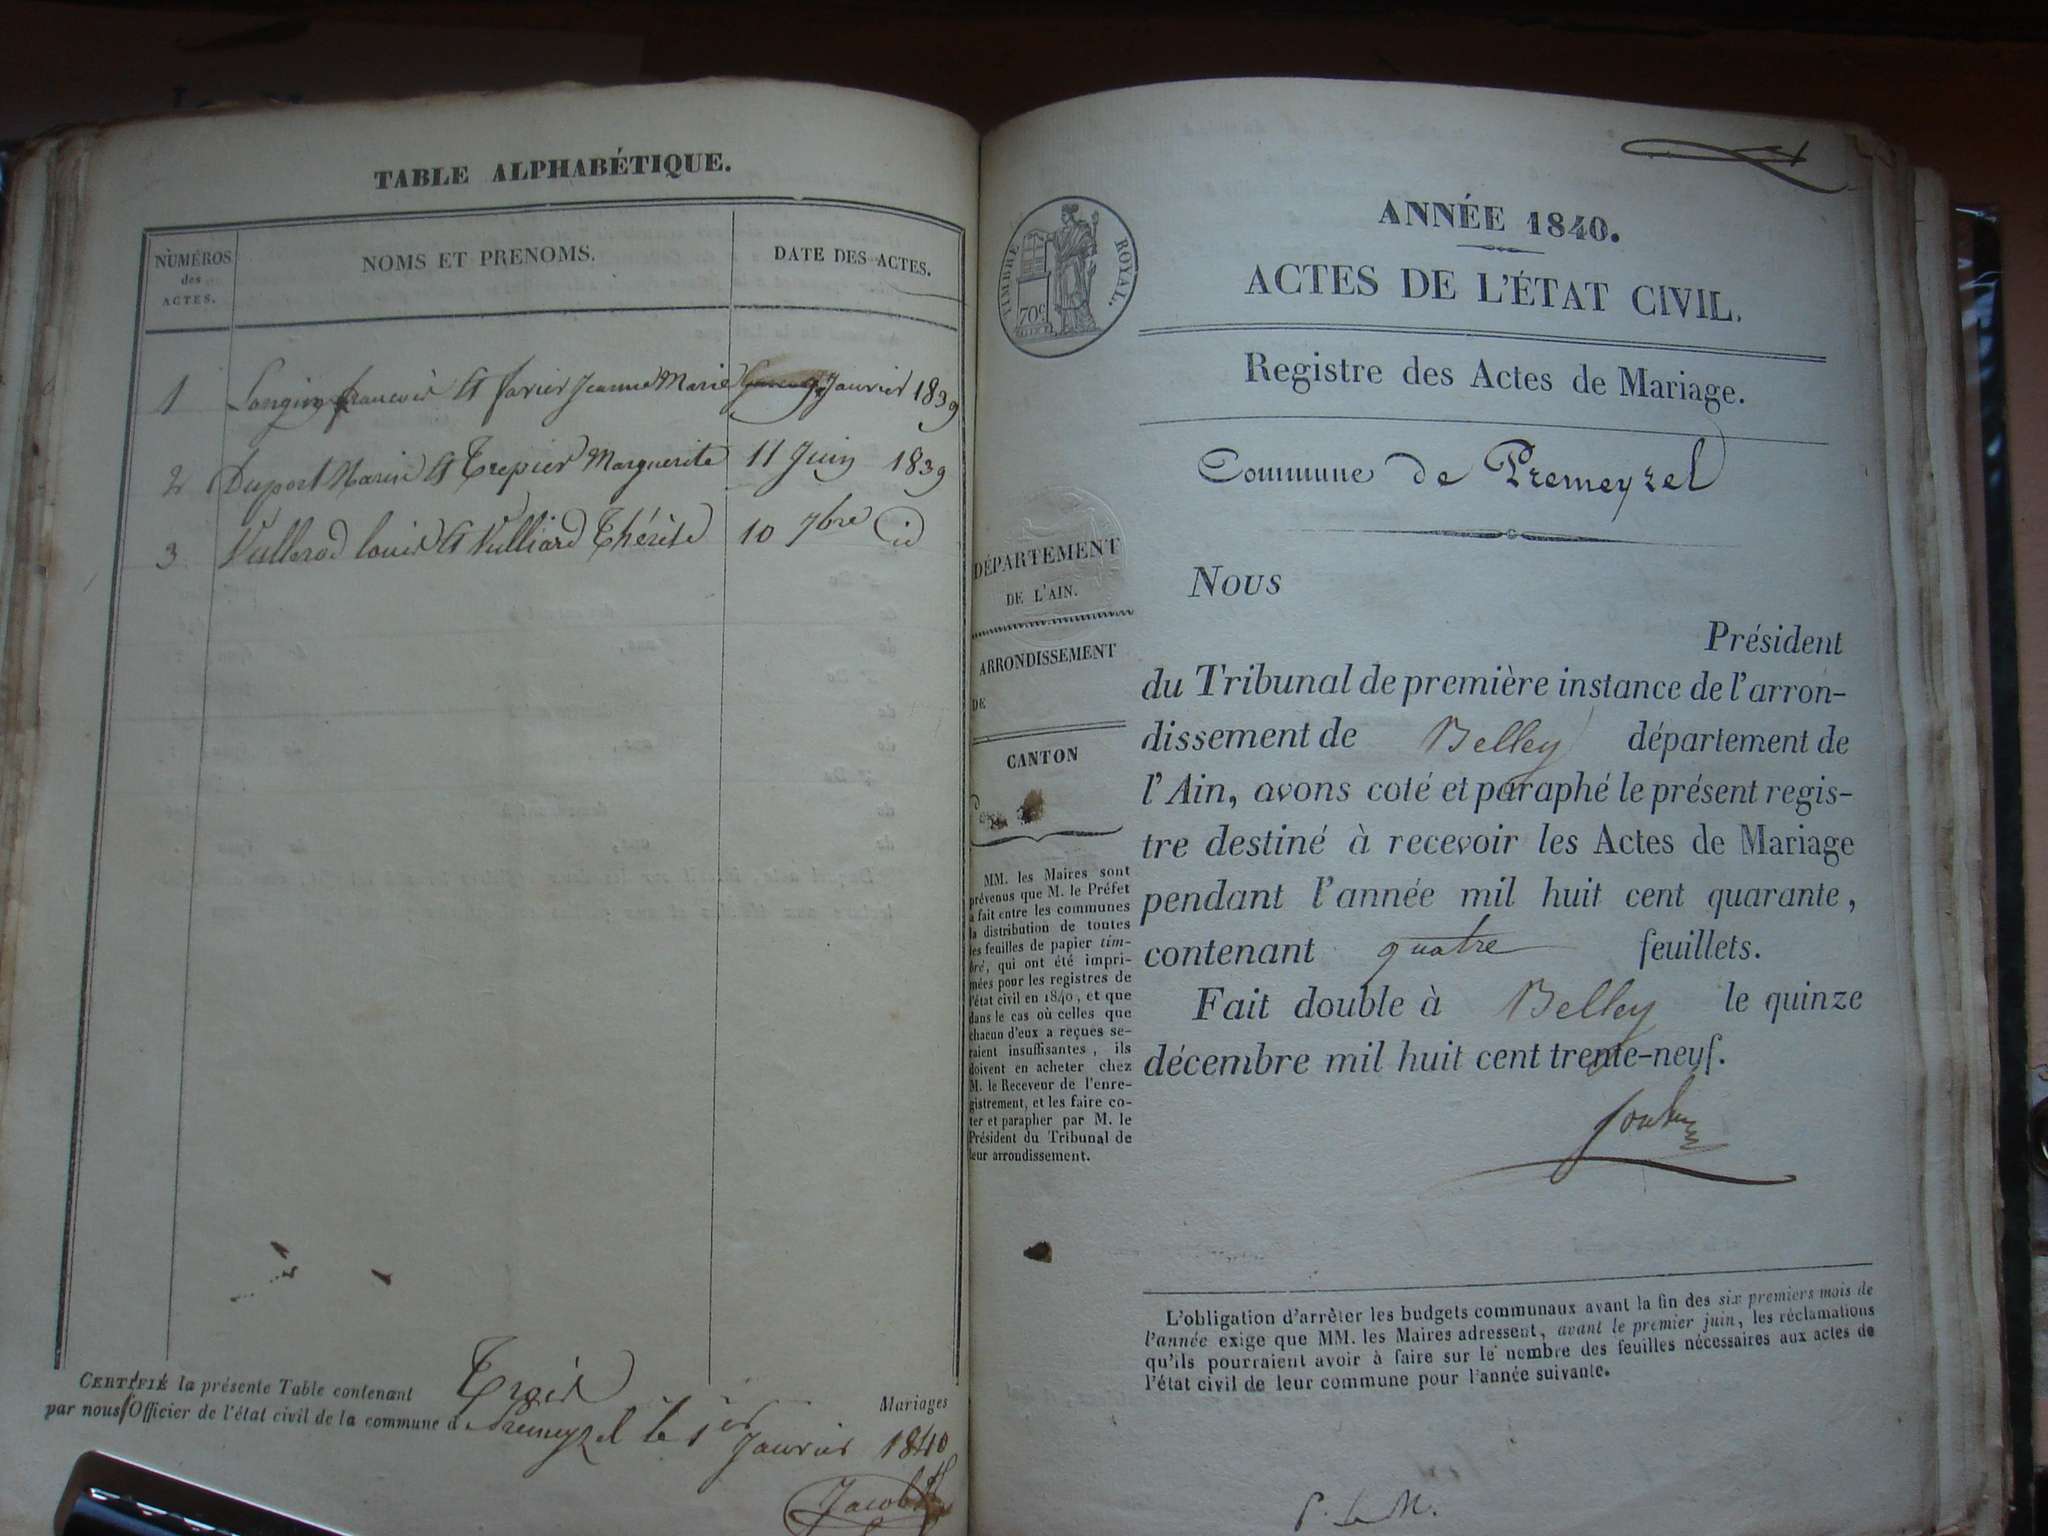 TABLE ALPHABÉTIQUE.
NUMÉROS des ACTES.
NOMS ET PRENOMS.
DATE DES ACTES.
1 Longin francois et favier Jeanne Marie Janvier 1839
2 Duport Marin et Trepier Marguerite 11 Juin 1839
3 Vullerod louis et Vulliard Thérèse 10 7bre id
CERTIFIÉ la présente Table contenant Trois Mariages
par nous Officier de l'état civil de la commune d Premeyzel le 1er
Janvier 1840
Jacob
TIMBRE ROYAL.
70c
ANNÉE 1840.
ACTES DE L'ÉTAT CIVIL.
Registre des Actes de Mariage.
Commune de Premeyzel
DÉPARTEMENT
DE L'AIN.
ARRONDISSEMENT
DE
CANTON
MM. les Maires sont
prévenus que M. le Préfet
a fait entre les communes
la distribution de toutes
les feuilles de papier tim-
bré, qui ont été impri-
mées pour les registres de
l'état civil en 1840, et que
dans le cas où celles que
chacun d'eux a reçues se-
raient insuffisantes, ils
doivent en acheter chez
M. le Receveur de l'enre-
gistrement, et les faire co-
ter et parapher par M. le
Président du Tribunal de
leur arrondissement.
Nous
Président
du Tribunal de première instance de l'arron-
dissement de Belley département de
l'Ain, avons coté et paraphé le présent regis-
tre destiné à recevoir les Actes de Mariage
pendant l'année mil huit cent quarante,
contenant quatre feuillets.
Fait double à Belley le quinze
décembre mil huit cent trente-neuf.
L'obligation d'arrêter les budgets communaux avant la fin des six premiers mois de
l'année exige que MM. les Maires adressent, avant le premier juin, les réclamations
qu'ils pourraient avoir à faire sur le nombre des feuilles nécessaires aux actes de
l'état civil de leur commune pour l'année suivante.